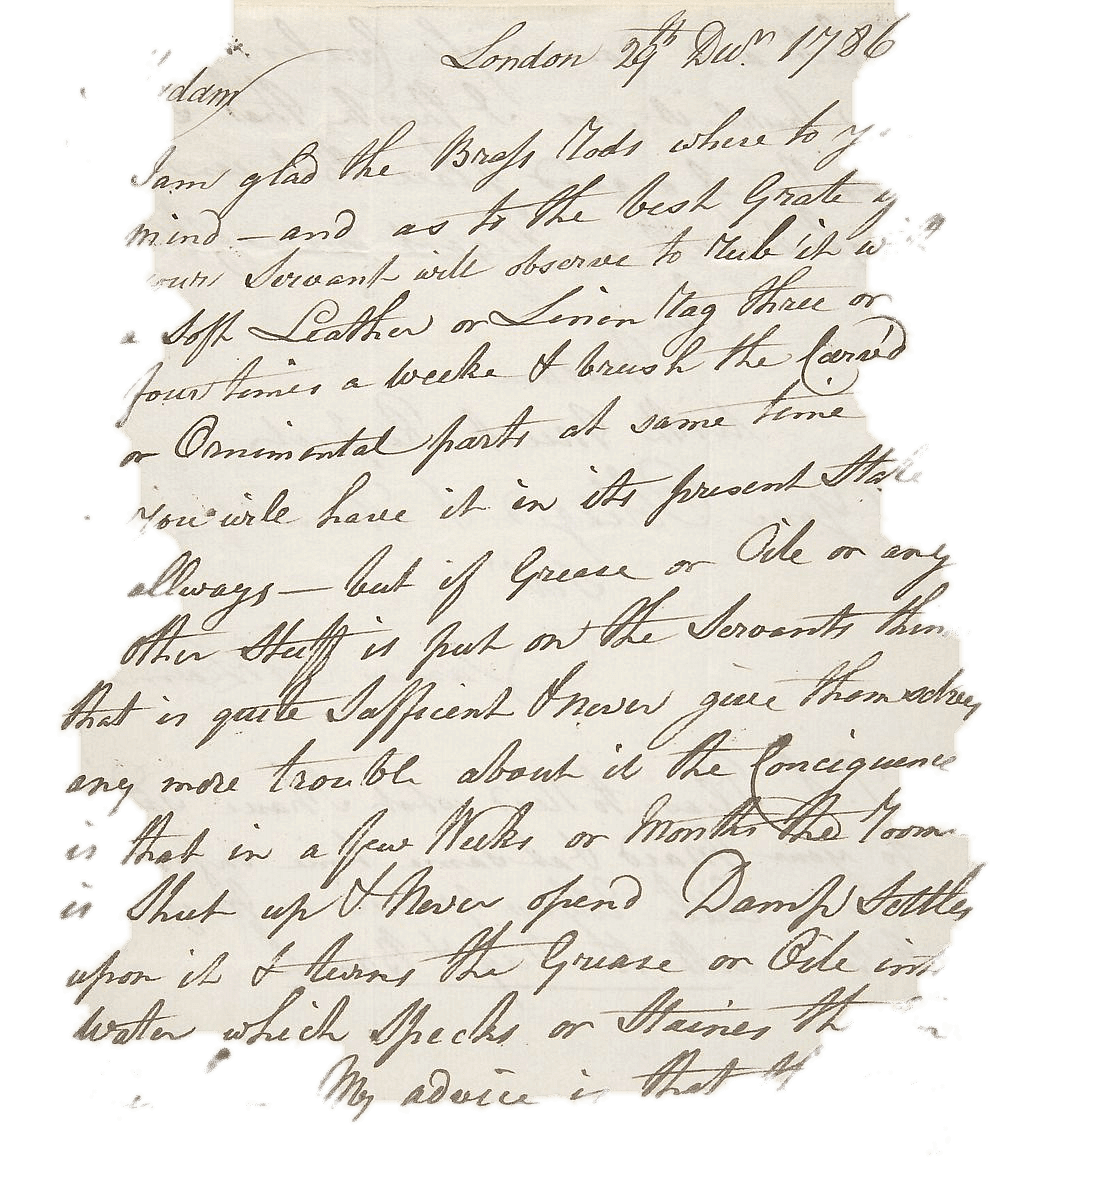 London 29th Decr. 1786
I am glad the Brass Rods where to
mind — and as to the best Grate
Servant will observe to rub it
soft Leather or Linin Rag three or
four times a weeke & brush the Carv'd
or Ornimental parts at same time
You will have it in its present State
allways — but if Grease or Oile or any
other Stuff is put on the Servants think
that is quite Sufficent & never give themselves
any more trouble about it the Conciquence
is that in a few Weeks or Months the Room
is Shut up & Never opend Damp Settles
upon it & turns the Grease or Oile into
Water which Specks or Staines
My advice is that